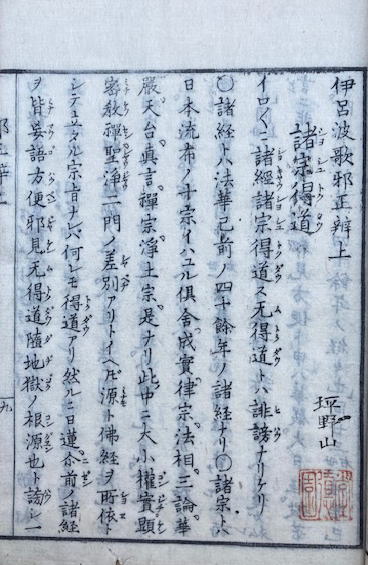 伊呂波歌邪正辨上
坪野山
諸宗得道
イロくニ諸經諸宗得道ス无得道トハ誹謗ナリケリ
〇諸経トハ法華已前ノ四十餘年ノ諸経ナリ〇諸宗トハ
日本流布ノ十宗イハユル俱舍成實律宗法相三論華
嚴天台真言禪宗淨土宗是ナリ此中ニ大小權實顯
密教禪聖淨二門ノ差別アリトイヘ𪜈源ト佛経ヲ所依ト
シテ立タル宗旨ナレハ何レモ得道アリ然ルニ日蓮尒前ノ諸経
ヲ皆妄語方便邪見无得道墮地獄ノ根源也ト謗シ一
九